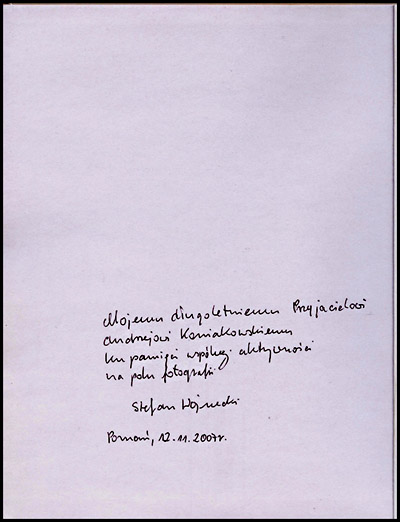 Mojemu długoletniemu Przyjacielowi
Andrzejowi Koniakowskiemu
ku pamięci wspólnej aktywności
na polu fotografii
Stefan Wojnecki
Poznań, 12.11.2007r.